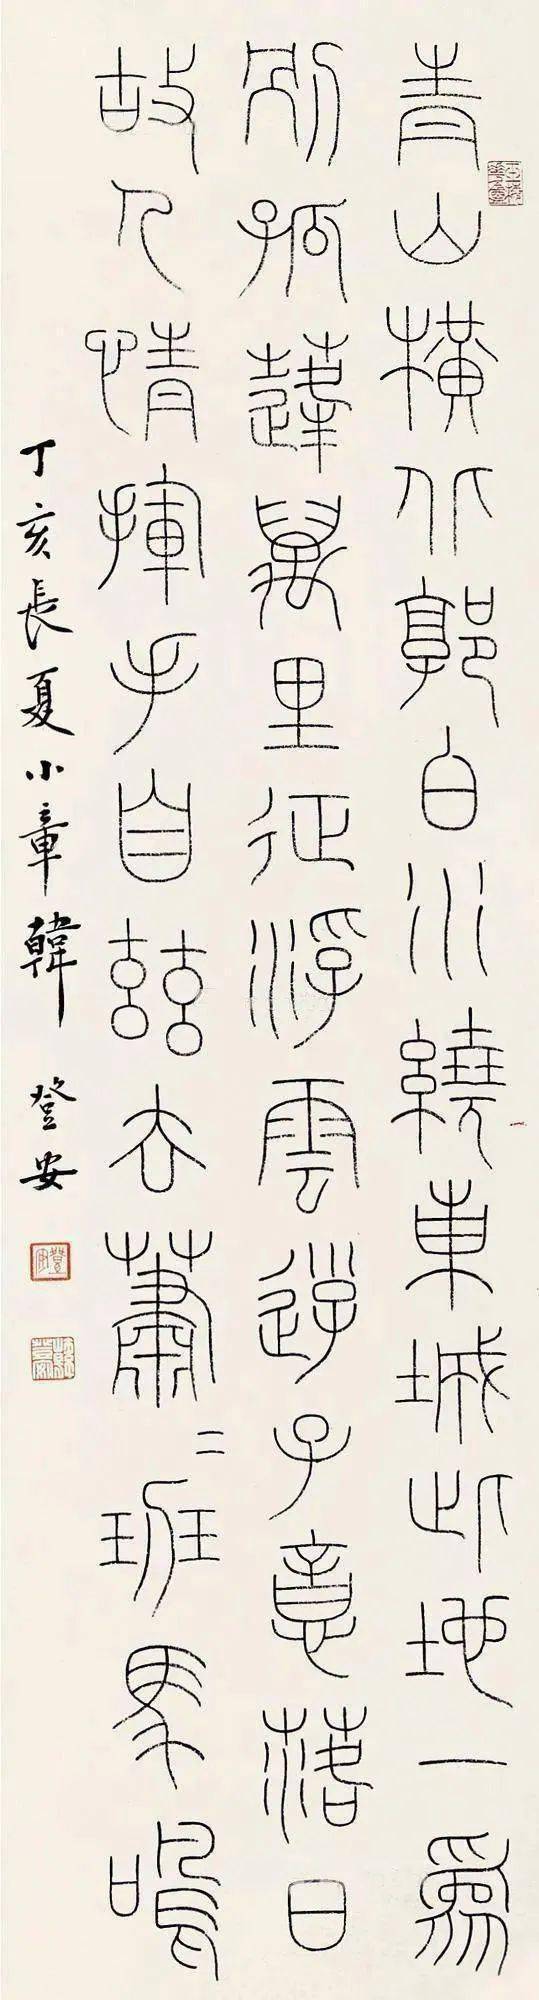 青山橫北郭白水繞東城此地一為
別孤蓬萬里征浮雲遊子意落日
故人情揮手自茲去蕭〻班馬鳴
丁亥長夏小章韓登安
登安